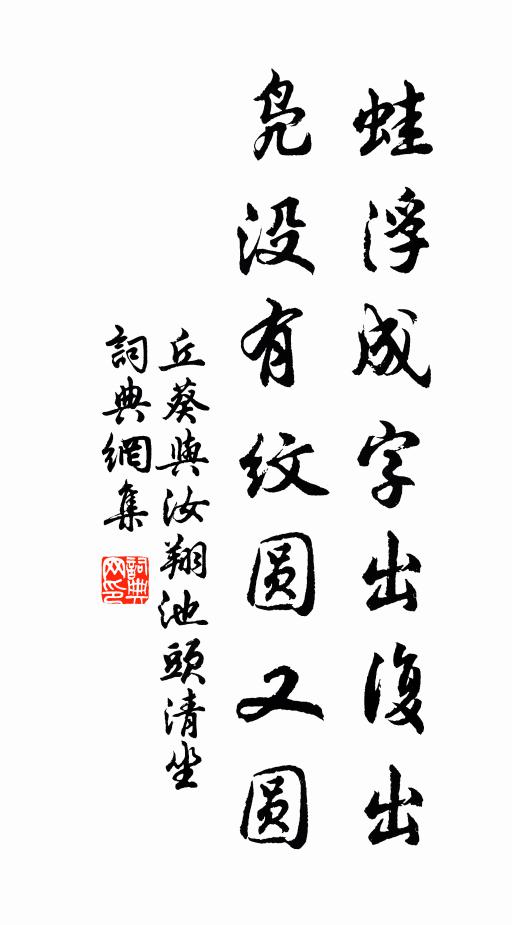 蛙浮成字出復出
凫没有纹圆又圆
丘葵與汝翔池頭清坐
詞典網集
詞典网印